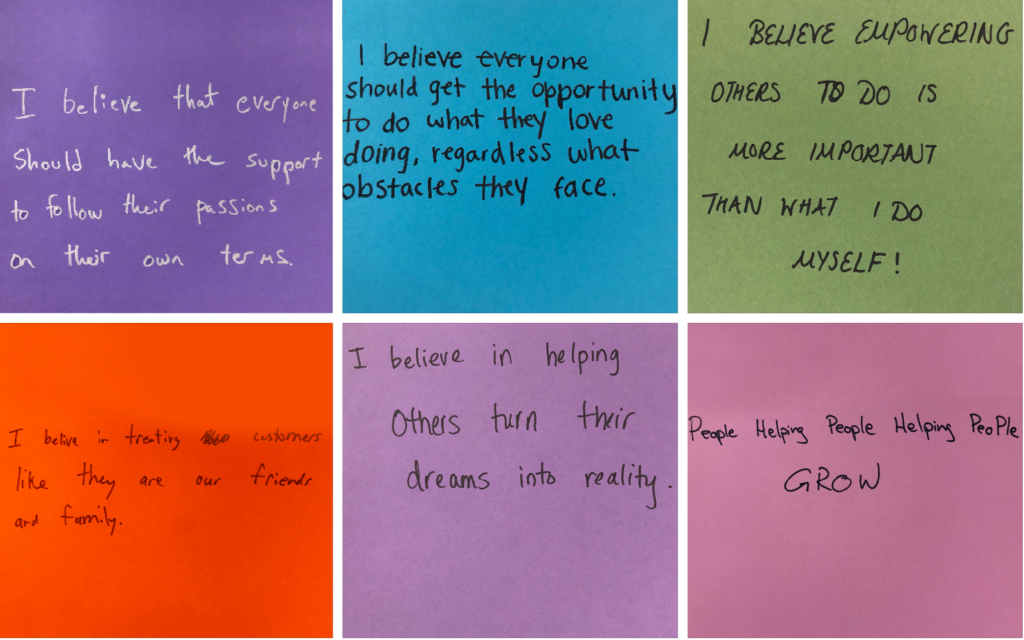 I believe that everyone
should have the support
to follow their passions
on their own terms.
I believe everyone
should get the opportunity
to do what they love
doing, regardless what
obstacles they face.
I BELIEVE EMPOWERING
OTHERS TO DO IS
MORE IMPORTANT
THAN WHAT I DO
MYSELF!
I belive in treating customers
like they are our friends
and family.
I believe in helping
Others turn their
dreams into reality.
People Helping People Helping PeoPle
GROW